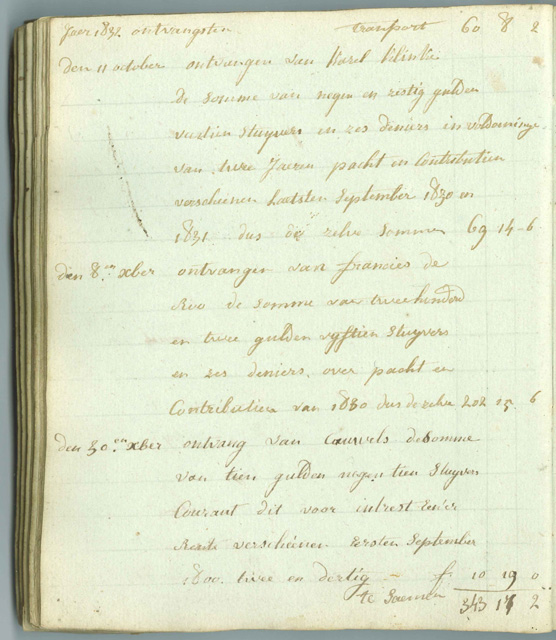 Jaer 1831 ontvangsten transport 60 8 2
den 11 october ontvangen van Karel Klinke
de somme van negen en zestig gulden
veertien stuyvers en zes deniers in voldoeninge
van twee Jaeren pacht en Contributien
verschenen laetsten September 1830 en
1831 dus de zelve somme 69 - 14 - 6
den 8.en xber ontvangen van francies de
Roo de somme van tweehonderd
en twee gulden vyftien stuyvers
en zes deniers over pacht en
Contributien van 1830 dus dezelve 202 15 6
den 30.en xber ontvang van Cauvels de somme
van tien gulden negentien stuyvers
Courant dit voor intrest eener
Rente verschenen eersten September
1800 twee en dertig - f. 10 19 0
te saemen 343 17 2